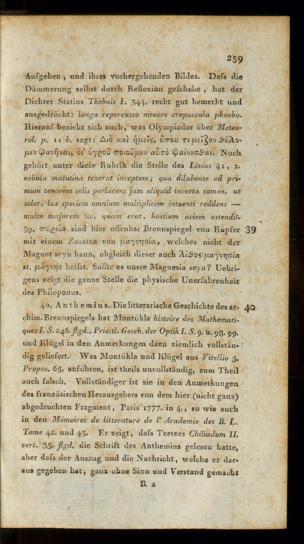 239
Aufgehen, und ihres vorhergehenden Bildes. Daſs die
Dämmerung selbst durch Reflexion geschehe, hat der
Dichter Statius Thebais I. 344. recht gut bemerkt und
ausgedrückt: longa repercusso nituere crepuscula phoebo.
Hierauf bezieht sich auch, was Olympiodor über Meteo-
rol. p. 11 b. sagt: Διὸ καὶ ἡμεῖς, ὁπου τι μεῖζον θέλο-
μεν φανῆναι, δἰ ὑγροῦ ποιοῦμεν αὐτὸ φαίνεσθαι. Noch
gehört unter diese Rubrik die Stelle des Livius 41, 2.
nebula matutina texerat inceptum; qua dilabente ad pri-
mum teporem solis perlucens jam aliquid incerta tamen, ut
solet, lux speciem omnium multiplicem intuenti reddens —
multo majorem iis, quam erat, hostium aciem ostendit.
39. πυρεῖα sind hier offenbar Brennspiegel von Kupfer 39
mit einem Zusatze von μαγνησία, welches nicht der
Magnet seyn kann, obgleich dieser auch λίθος μαγνησία
st. μάγνης heiſst. Sollte es unsre Magnesia seyn? Uebri-
gens zeigt die ganze Stelle die physische Unerfahrenheit
des Philoponus.
40. Anthemius. Die litterarische Geschichte des ar- 40
chim. Brennspiegels hat Montükla histoire des Mathemati-
ques I. S. 246. flgd., Priestl. Gesch. der Optik I. S. 9. u. 98. 99.
und Klügel in den Anmerkungen dazu ziemlich vollstän-
dig geliefert. Was Montükla und Klügel aus Vitellio 5.
Propos. 65. anführen, ist theils unvollständig, zum Theil
auch falsch. Vollständiger ist sie in den Anmerkungen
des französischen Herausgebers von dem hier (nicht ganz)
abgedruckten Fragment, Paris 1777. in 4., so wie auch
in den Mémoires de litterature de l' Academie des B. L.
Tome 42. und 43. Er zeigt, daſs Tzetzes Chiliadum II.
vers. 35. flgd. die Schrift des Anthemius gelesen hatte,
aber daſs der Auszug und die Nachricht, welche er dar-
aus gegeben hat, ganz ohne Sinn und Verstand gemacht
R 2